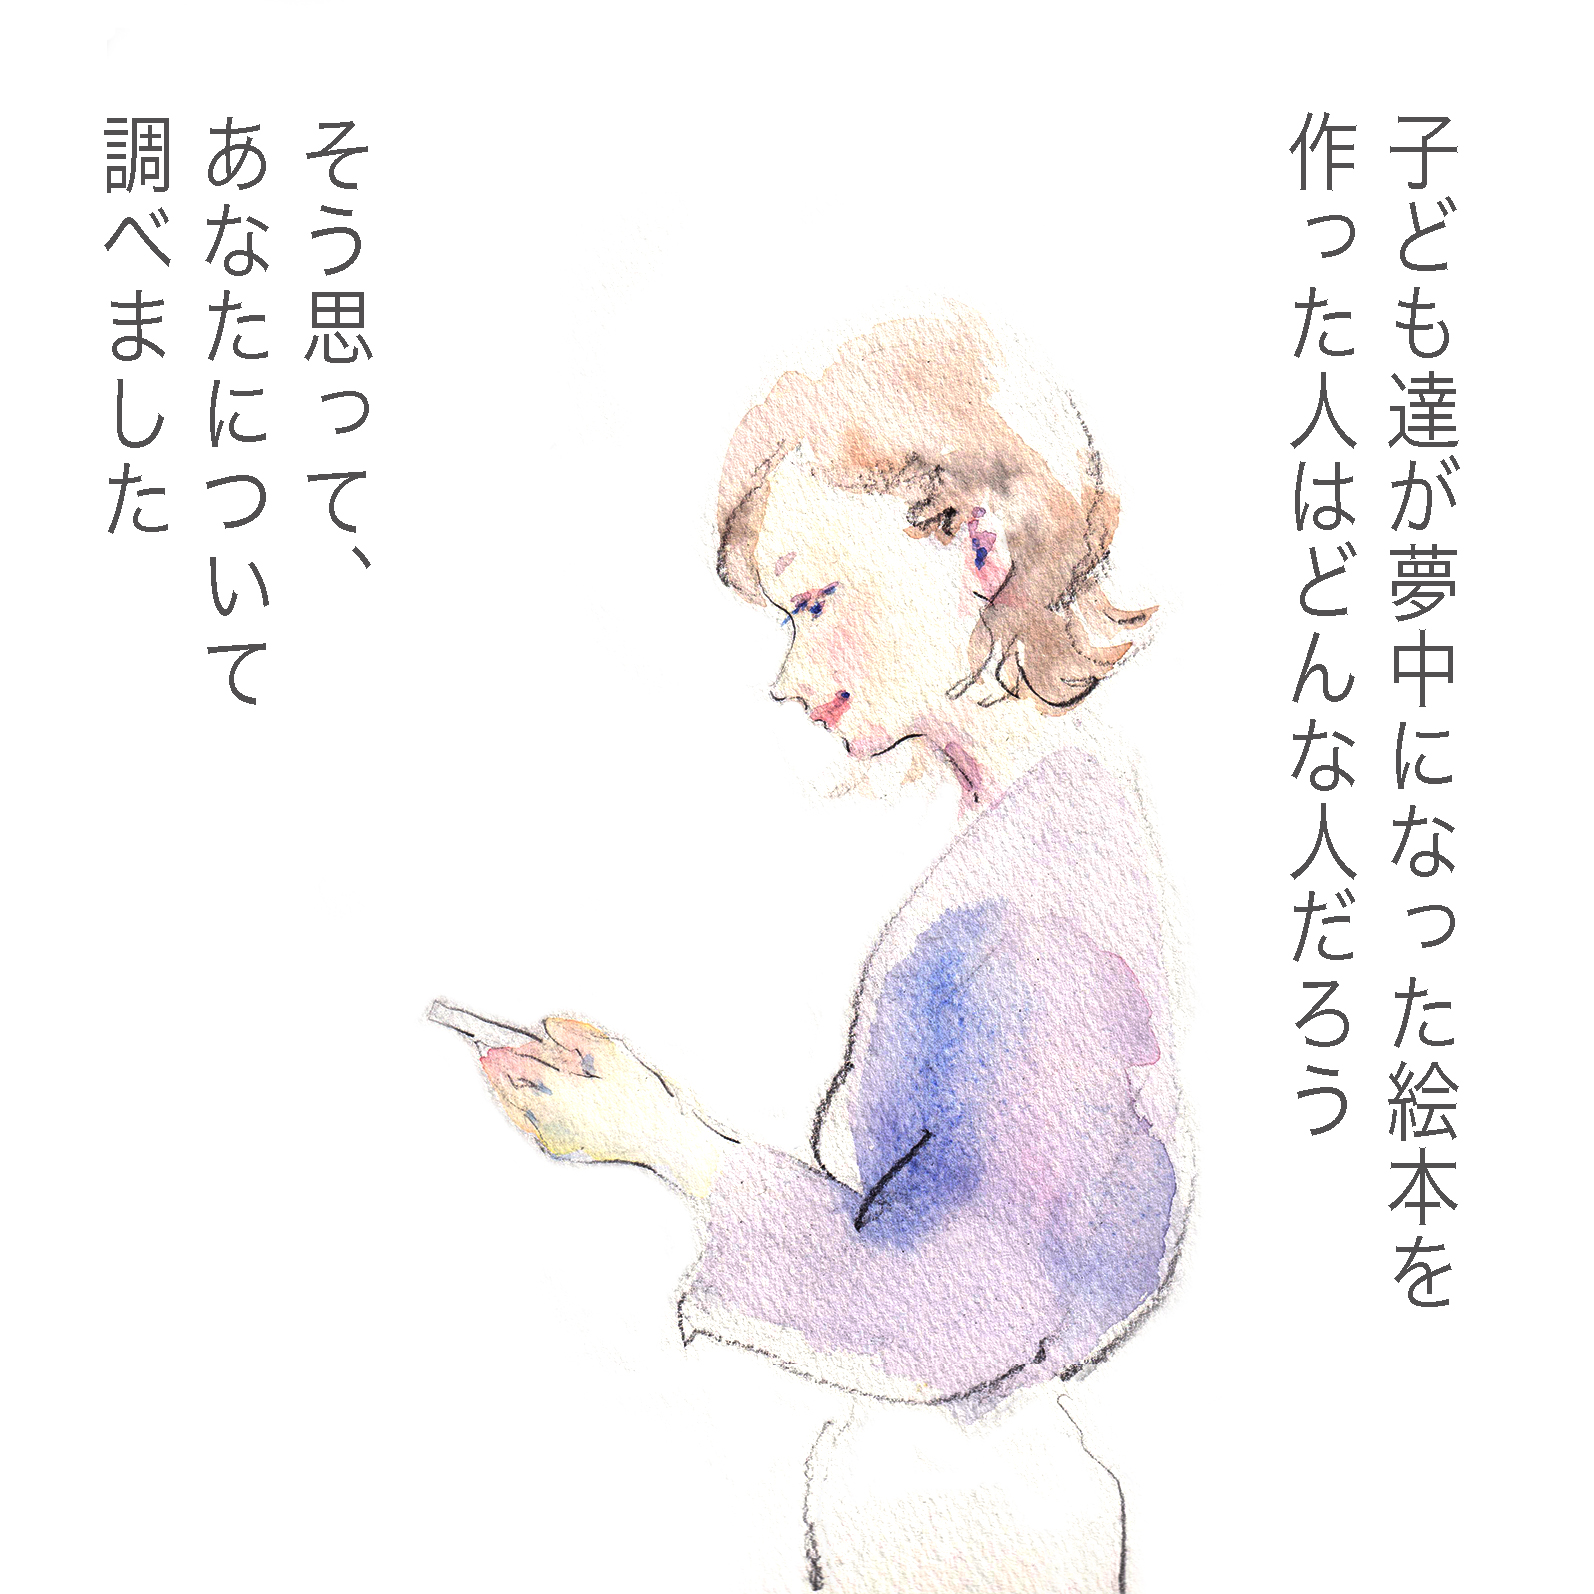 子ども達が夢中になった絵本を
作った人はどんな人だろう
そう思って、
あなたについて
調べました